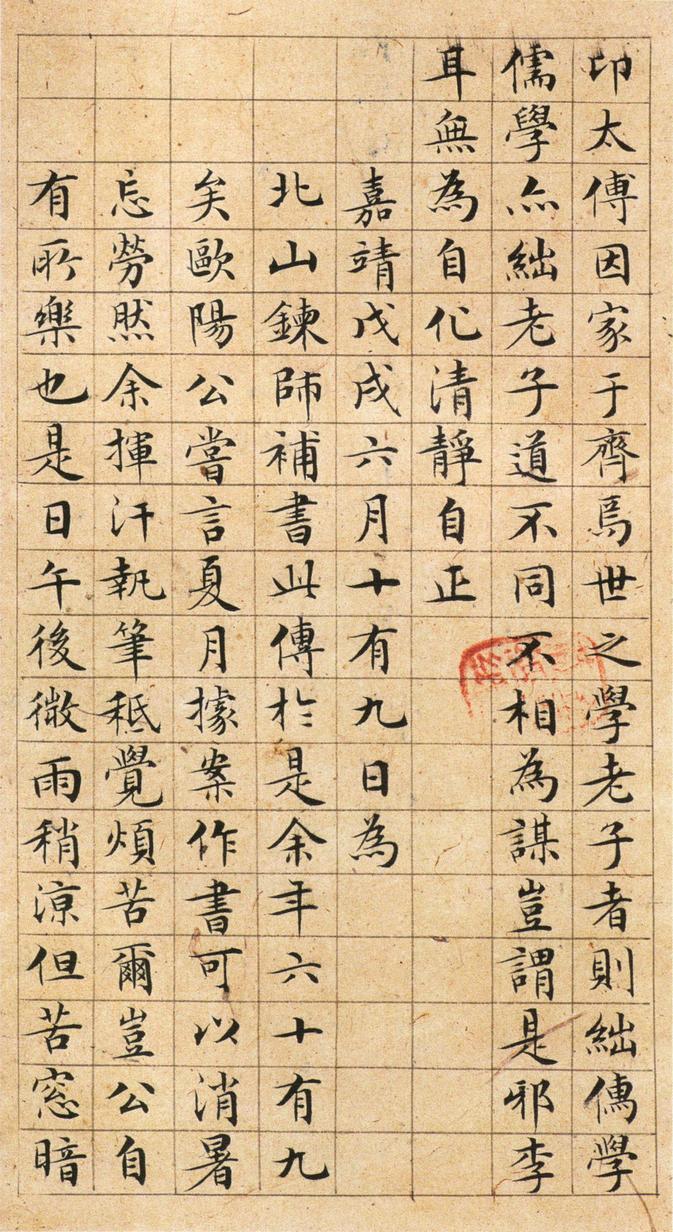 卬太傅因家于齊焉世之學老子者則絀儒學
儒學亦絀老子道不同不相為謀豈謂是邪李
耳無為自化清靜自正
嘉靖戊戌六月十有九日為
北山鍊師補書此傳於是余年六十有九
矣歐陽公嘗言夏月據案作書可以消暑
忘勞然余揮汗執筆秪覺煩苦爾豈公自
有所樂也是日午後微雨稍涼但苦窓暗